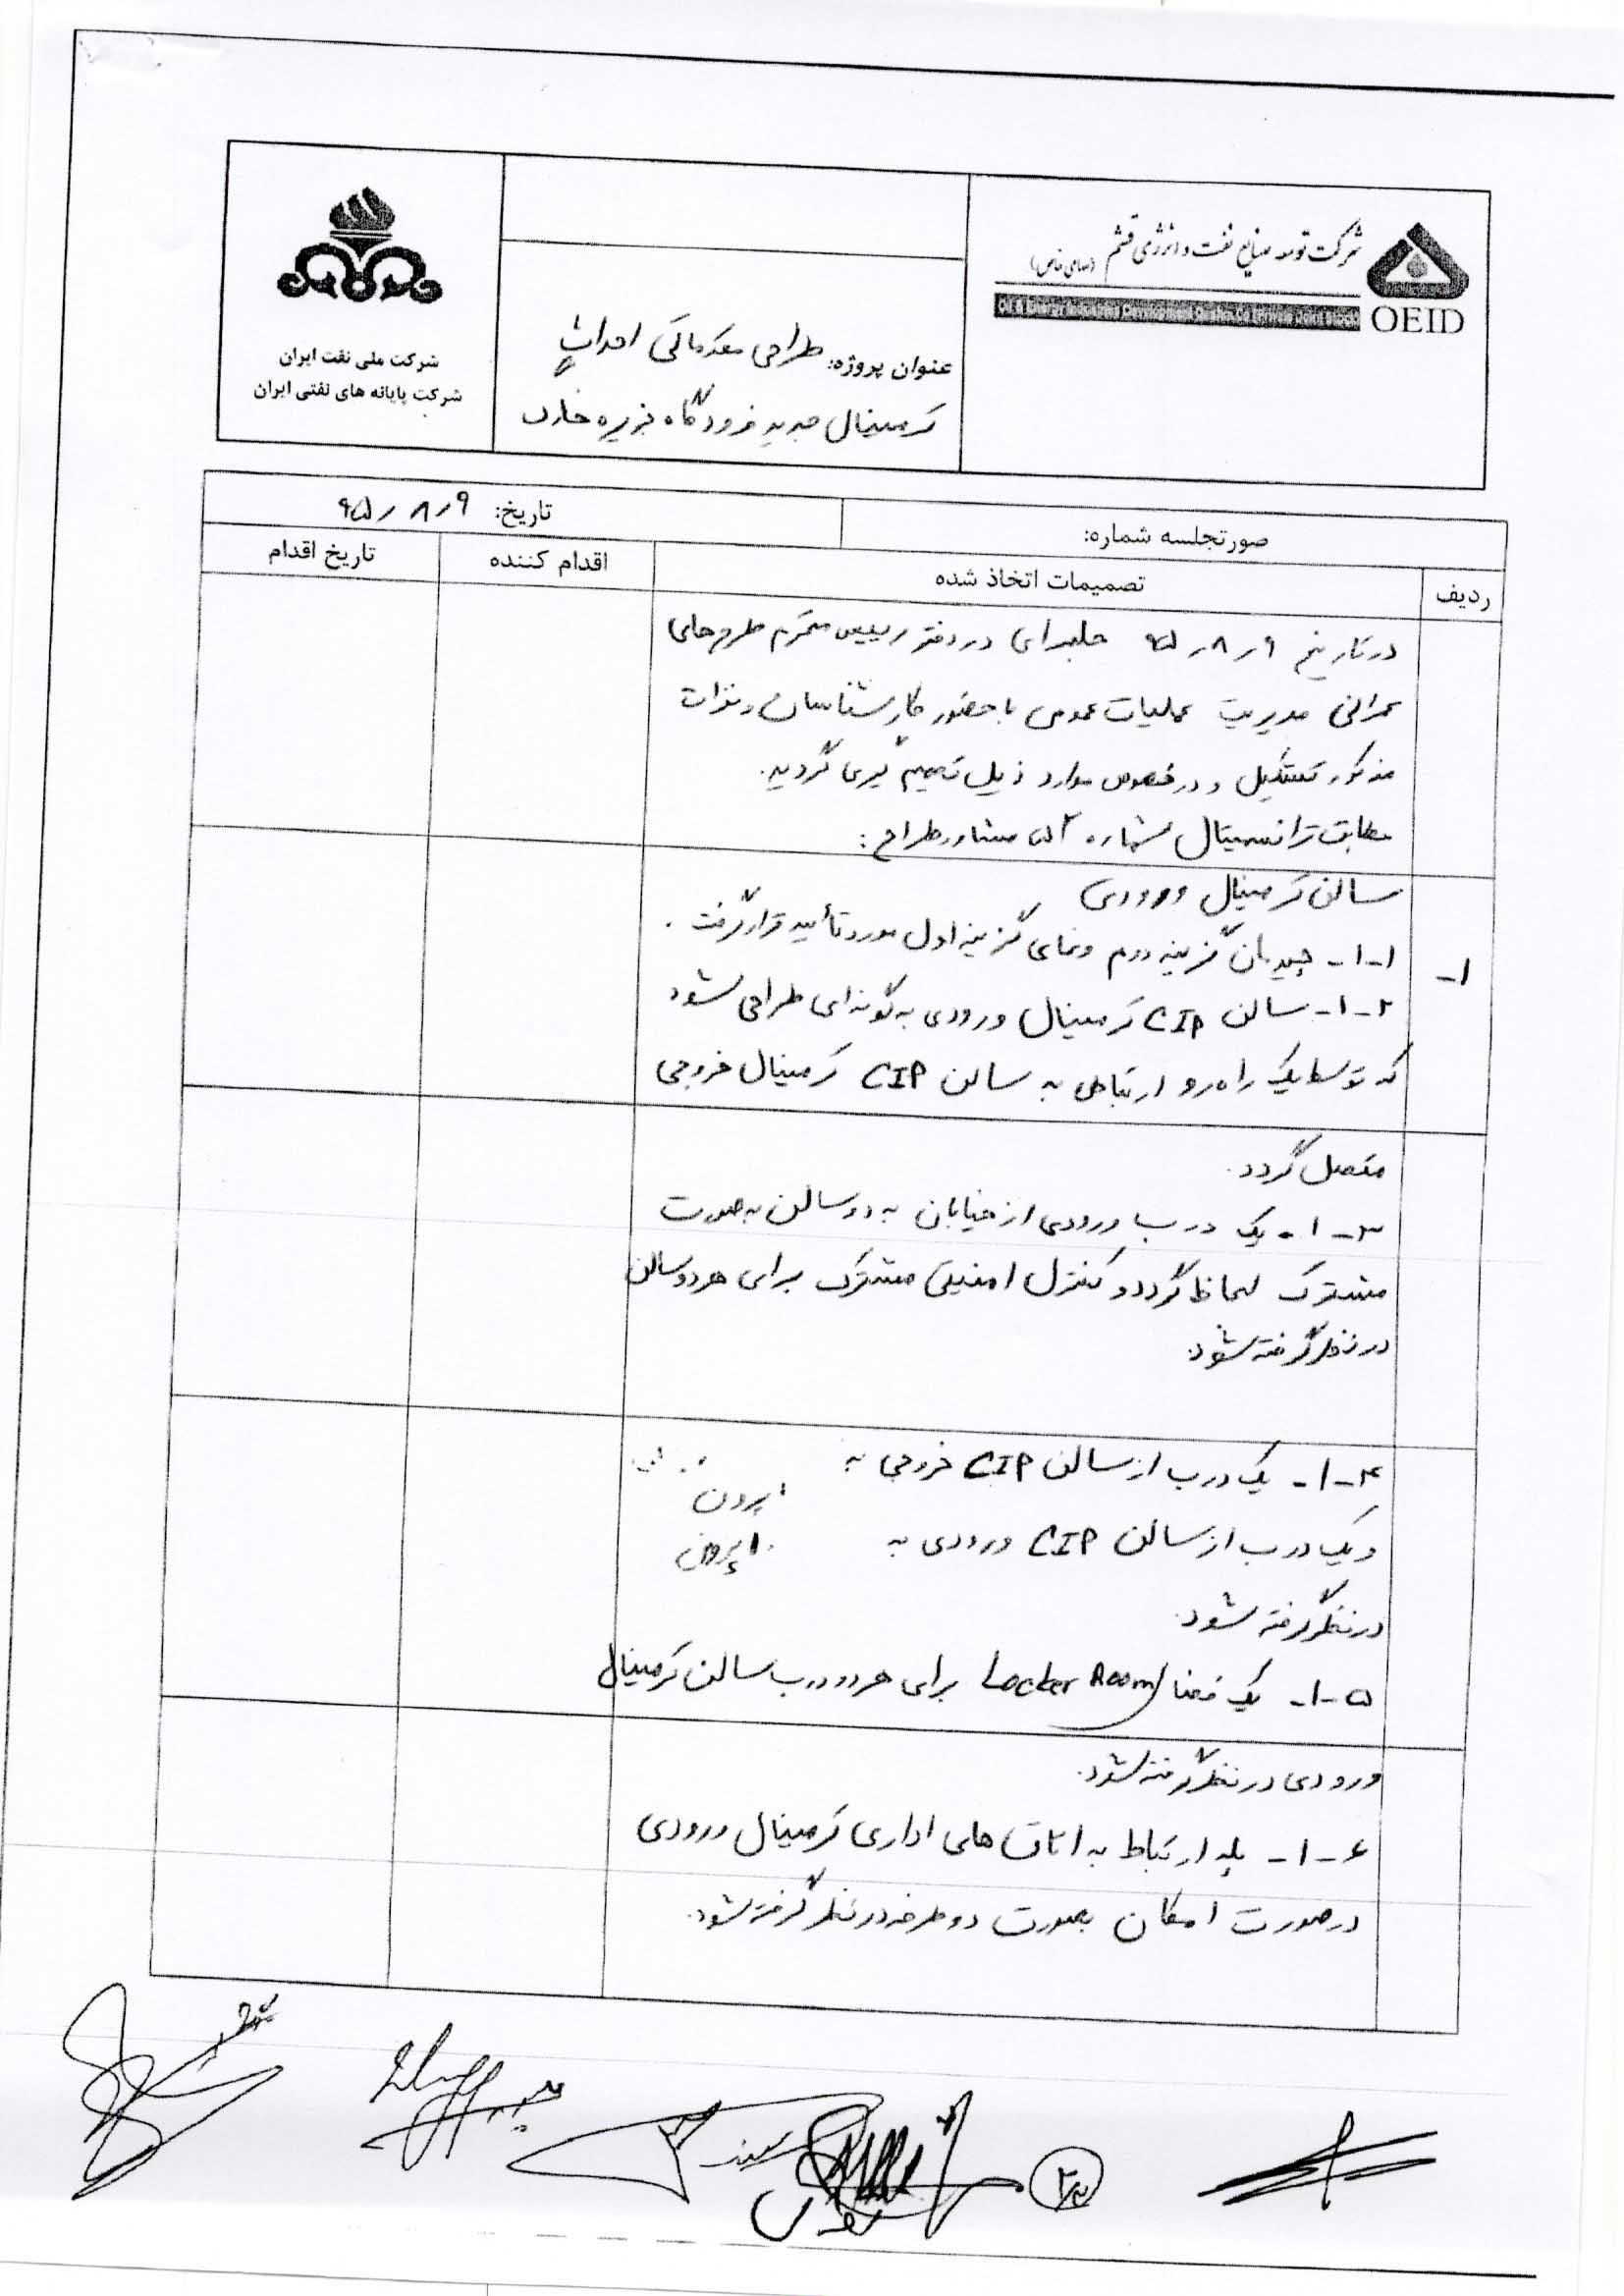 شرکت توسعه صنایع نفت و انرژی قشم (سهامی خاص)
Oil & Energy Industries Development Qeshm Co (Private Joint Stock)
OEID
عنوان پروژه: طراحی مقدماتی احداث
ترمینال جدید فرودگاه جزیره خارک
شرکت ملی نفت ایران
شرکت پایانه های نفتی ایران
صورتجلسه شماره:
تاریخ: ۹۵/۸/۹
ردیف
تصمیمات اتخاذ شده
اقدام کننده
تاریخ اقدام
در تاریخ ۹۵/۸/۹ جلسه‌ای در دفتر رییس محترم طرح‌های
عمرانی مدیریت عملیات عمومی با حضور کارشناسان و نفرات
مذکور تشکیل و در خصوص موارد ذیل تصمیم گیری گردید.
مطابق ترانسمیتال شماره مشاور طراح:
۱-
سالن ترمینال ورودی
۱-۱- چیدمان گزینه دوم و نمای گزینه اول مورد تأیید قرار گرفت.
۲-۱- سالن CIP ترمینال ورودی به گونه‌ای طراحی شود
که توسط یک راهرو ارتباطی به سالن CIP ترمینال خروجی
متصل گردد.
۳-۱- یک درب ورودی از خیابان به دو سالن به صورت
مشترک لحاظ گردد و کنترل امنیتی مشترک برای هر دو سالن
در نظر گرفته شود.
۴-۱- یک درب از سالن CIP خروجی به اپرون
و یک درب از سالن CIP ورودی به اپرون
در نظر گرفته شود.
۵-۱- یک فضا Locker Room برای هر دو درب سالن ترمینال
ورودی در نظر گرفته شود.
۶-۱- پله ارتباط به اتاق های اداری ترمینال ورودی
در صورت امکان بصورت دو طرفه در نظر گرفته شود.